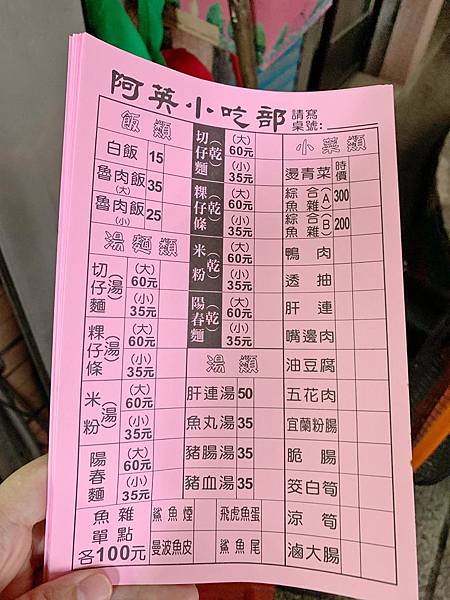 阿英小吃部
請寫
桌號:
飯類
白飯 15
魯肉飯(大) 35
魯肉飯(小) 25
湯麵類
切仔麵(湯) (大)60元
(小)35元
粿仔條(湯) (大)60元
(小)35元
米粉(湯) (大)60元
(小)35元
陽春麵 (大)60元
(小)35元
魚雜單點各100元
鯊魚煙
飛虎魚蛋
曼波魚皮
鯊魚尾
切仔麵(乾) (大)60元
(小)35元
粿仔條(乾) (大)60元
(小)35元
米粉(乾) (大)60元
(小)35元
陽春麵(乾) (大)60元
(小)35元
湯類
肝連湯 50
魚丸湯 35
豬腸湯 35
豬血湯 35
小菜類
燙青菜 時價
綜合魚雜(A) 300
綜合魚雜(B) 200
鴨肉
透抽
肝連
嘴邊肉
油豆腐
五花肉
宜蘭粉腸
脆腸
筊白筍
涼筍
滷大腸